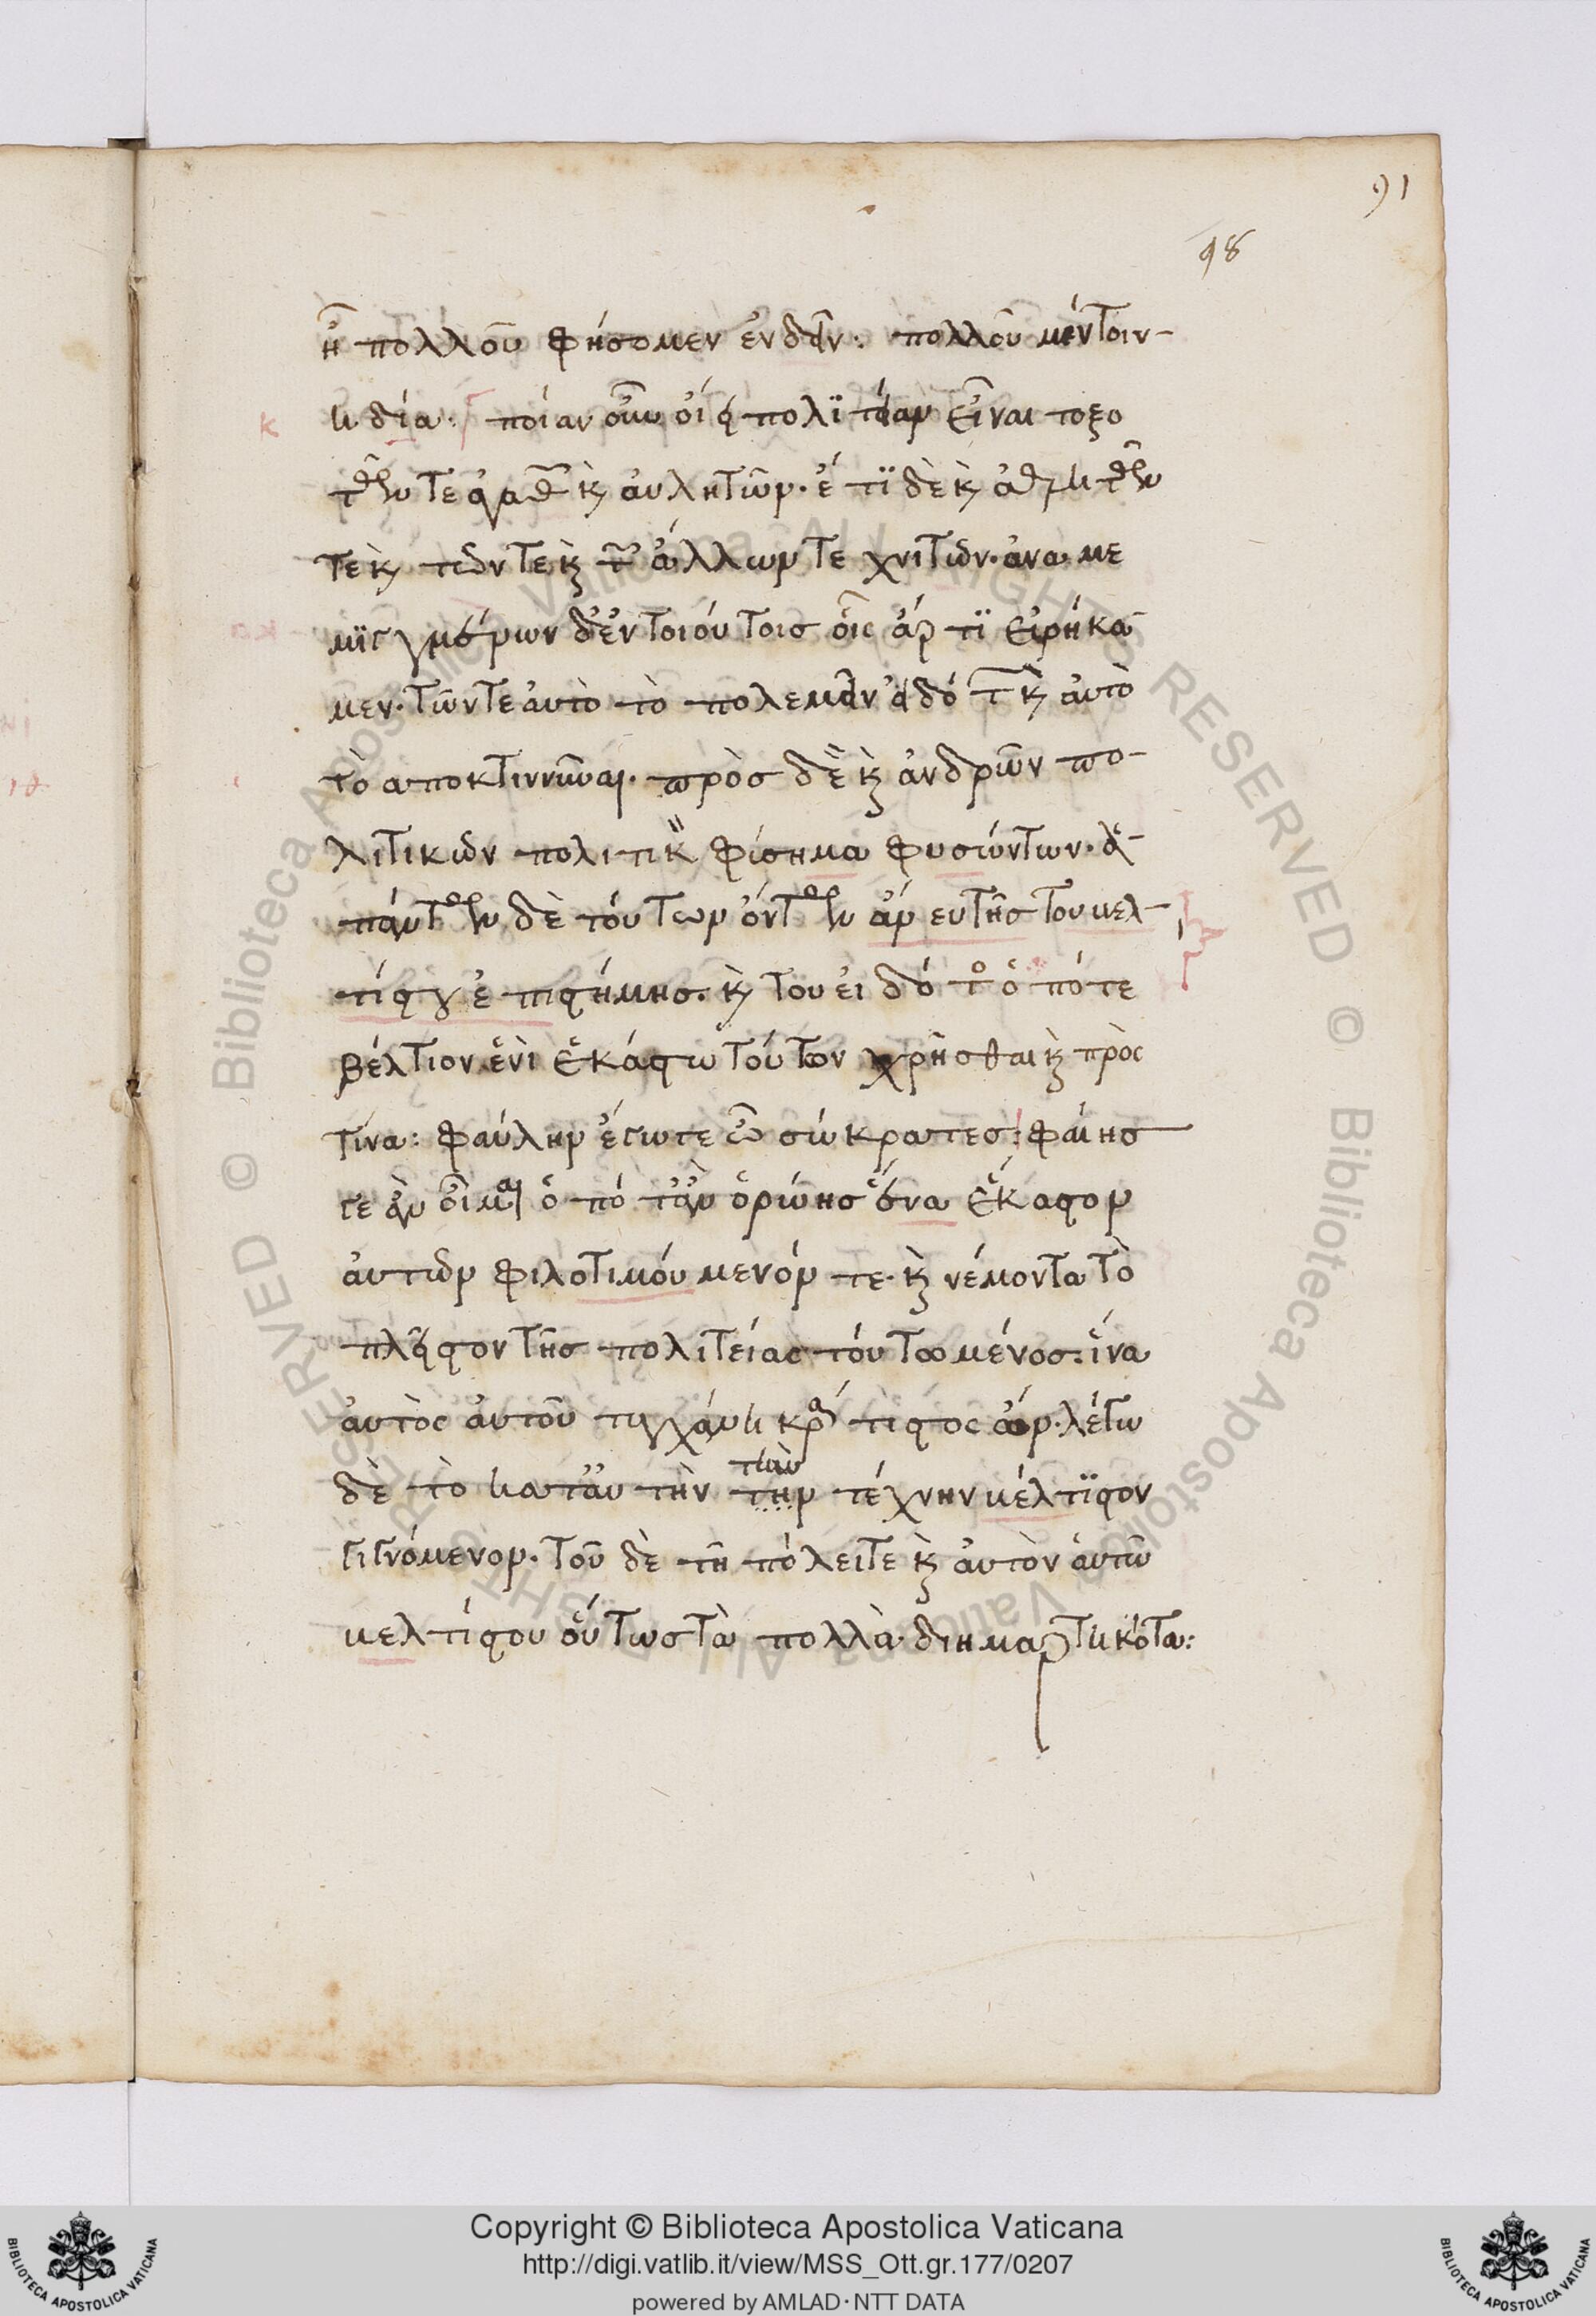 91
98
ἢ πολλοῦ φήσομεν ἐνδεῖν: πολλοῦ μέντοι ν-
ὴ δία: ποίαν οὖν οἴει πολιτείαν εἶναι τοξο
τῶν τε ἀγαθῶν καὶ αὐλητῶν. ἔτι δὲ καὶ ἀθλητῶν
τε καὶ τῶν τε καὶ τῶν ἄλλων τεχνιτῶν. ἀναμε
μιγμένων δ' ἐν τοιούτοις οἷς ἄρτι εἰρήκα
μεν. τῶν τε αὐτὸ τὸ πολεμεῖν εἰδότων καὶ αὐτὸ
τὸ αποκτιννῦναι. πρὸς δὲ καὶ ἀνδρῶν πο-
λιτικῶν πολιτικὸν φύσημα φυσώντων. ἁ-
πάντων δὲ τούτων ὄντων ἄνευ τῆς τοῦ βελ-
τίστου ἐπιστήμης. καὶ τοῦ εἰδότος ὁπότε
βέλτιον ἑνὶ ἑκάστω τούτων χρῆσθαι καὶ πρὸς
τίνα: φαύλην ἔγωγε ὦ σώκρατες: φαίης
γε ἂν οἶμαι ὁπόταν ὁρώης ἕνα ἕκαστον
αὐτῶν φιλοτιμούμενόν τε. καὶ νέμοντα τὸ
πλεῖστον τῆς πολιτείας τούτω μέρος. ἵνα
αὐτὸς αὑτοῦ τυγχάνη κράτιστος ὤν. λέγω
δὲ τὸ κατ' αὐτὴν τὴν
τὴν τέχνην βέλτιστον
γιγνόμενον. τοῦ δὲ τῆ πόλει τε καὶ αὐτὸν αὑτῶ
βελτίστου οὕτως τὰ πολλὰ διημαρτηκότα:
κ
Copyright © Biblioteca Apostolica Vaticana
http://digi.vatlib.it/view/MSS_Ott.gr.177/0207
powered by AMLAD·NTT DATA
BIBLIOTECA APOSTOLICA VATICANA
BIBLIOTECA APOSTOLICA VATICANA